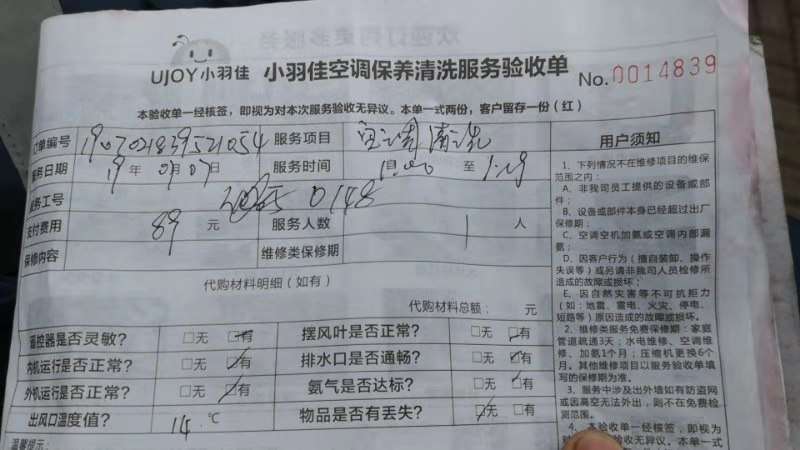 UJOY小羽佳 小羽佳空调保养清洗服务验收单 No.0014839
本验收单一经核签，即视为对本次服务验收无异议。本单一式两份，客户留存一份（红）
订单编号 190702183952105 4 服务项目 空调清洗
服务日期 19 年 07 月 07 日 服务时间 至
务工号 0148
支付费用 89 元 服务人数 1 人
保修内容 维修类保修期
代购材料明细（如有）
代购材料总额： 元
遥控器是否灵敏？ □无 □有 摆风叶是否正常？ □无 □有
内机运行是否正常？ □无 □有 排水口是否通畅？ □无 □有
外机运行是否正常？ □无 □有 氨气是否达标？ □无 □有
出风口温度值？ 14 ℃ 物品是否有丢失？ □无 □有
温馨提示：
用户须知
1、下列情况不在维修项目的维保
范围之内：
A、非我司员工提供的设备或部
件；
B、设备或部件本身已经超过出厂
保修期；
C、空调空机加氨或空调内部漏
氨；
D、因客户行为（擅自装卸、操作
失误等）或另请非我司人员检修所
造成的故障或损坏；
E、因自然灾害等不可抗拒力
（如：地震、雷电、火灾、停电、
短路等）原因造成的故障或损坏。
2、维修类服务免费保修期：家庭
管道疏通3天；水电维修、空调维
修、加氨1个月；压缩机更换6个
月。其他维修项目以服务验收单填
写的保修期为准。
3、服务中涉及出外墙如有防盗网
或因高空无法外出，则不在免费检
测范围。
4、本验收单一经核签，即视为
验收无异议。本单一式